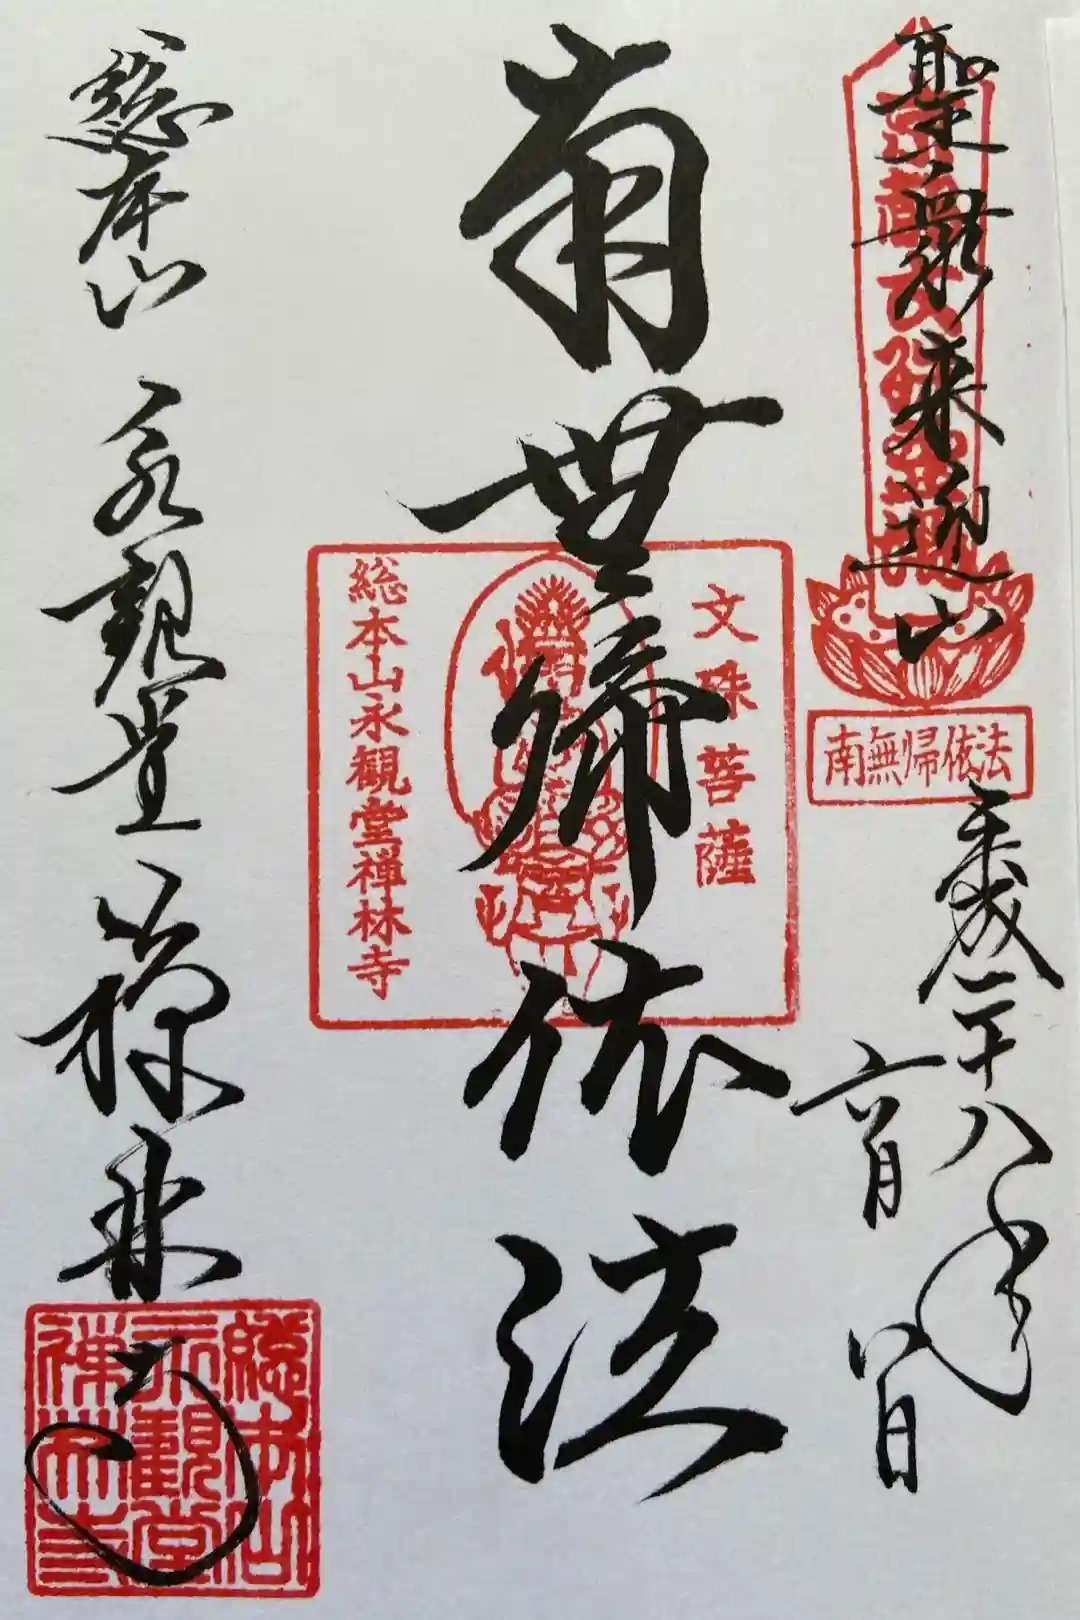 聖衆来迎山
南無帰依法
平成二十八年
六月八日
文殊菩薩
南無帰依法
総本山永観堂禅林寺
総本山 永観堂 禅林寺
総本山
永観堂
禅林寺